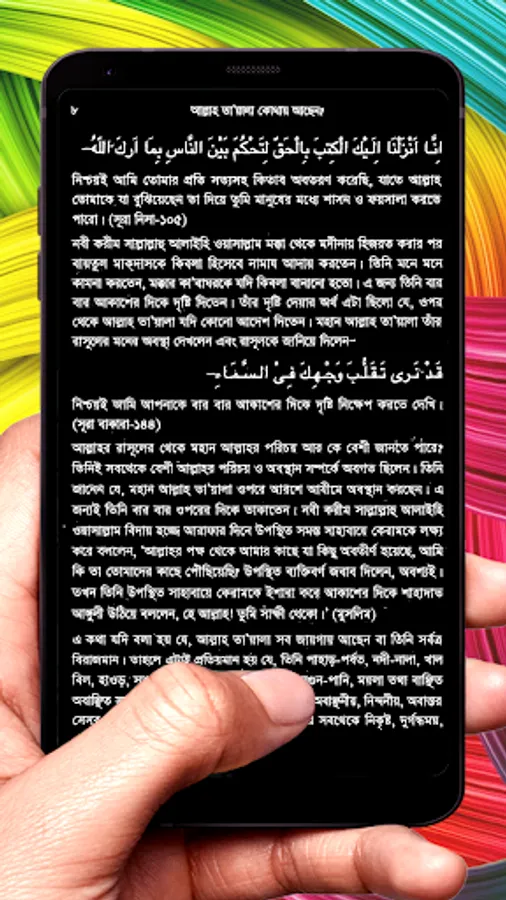 ৮ আল্লাহ তা'য়ালা কোথায় আছেন?
اِنَّا اَنْزَلْنَا اِلَيْكَ الْكِتٰبَ بِالْحَقِّ لِتَحْكُمَ بَيْنَ النَّاسِ بِمَا اَرٰكَ اللّٰهُ–
নিশ্চয়ই আমি তোমার প্রতি সত্যসহ কিতাব অবতরণ করেছি, যাতে আল্লাহ
তোমাকে যা বুঝিয়েছেন তা দিয়ে তুমি মানুষের মধ্যে শাসন ও ফয়সালা করতে
পারো। (সূরা নিসা-১০৫)
নবী করীম সাল্লাল্লাহু আলাইহি ওয়াসাল্লাম মক্কা থেকে মদীনায় হিজরত করার পর
বায়তুল মাক্‌দাসকে কিবলা হিসেবে নামায আদায় করতেন। তিনি মনে মনে
কামনা করতেন, মক্কার কা'বাঘরকে যদি কিবলা বানানো হতো। এ জন্য তিনি বার
বার আকাশের দিকে দৃষ্টি দিতেন। তাঁর দৃষ্টি দেয়ার অর্থ এটা ছিলো যে, ওপর
থেকে আল্লাহ তা'য়ালা যদি কোনো আদেশ দিতেন। মহান আল্লাহ তা'য়ালা তাঁর
রাসূলের মনের অবস্থা দেখলেন এবং রাসূলকে জানিয়ে দিলেন–
قَدْ نَرٰى تَقَلُّبَ وَجْهِكَ فِىْ السَّمَاءِ–
নিশ্চয়ই আমি আপনাকে বার বার আকাশের দিকে দৃষ্টি নিক্ষেপ করতে দেখি।
(সূরা বাকারা-১৪৪)
আল্লাহর রাসূলের থেকে মহান আল্লাহর পরিচয় আর কে বেশী জানতে পারে?
তিনিই সবথেকে বেশী আল্লাহর পরিচয় ও অবস্থান সম্পর্কে অবগত ছিলেন। তিনি
জানেন যে, মহান আল্লাহ তা'য়ালা ওপরে আরশে আযীমে অবস্থান করছেন। এ
জন্যই তিনি বার বার ওপরের দিকে তাকাতেন। নবী করীম সাল্লাল্লাহু আলাইহি
ওয়াসাল্লাম বিদায় হজ্জে আরাফার দিনে উপস্থিত সমস্ত সাহাবায়ে কেরামকে লক্ষ্য
করে বললেন, 'আল্লাহর পক্ষ থেকে আমার কাছে যা কিছু অবতীর্ণ হয়েছে, আমি
কি তা তোমাদের কাছে পৌছিয়েছি? উপস্থিত ব্যক্তিবর্গ জবাব দিলেন, অবশ্যই।
তখন তিনি উপস্থিত সাহাবায়ে কেরামকে ইশারা করে আকাশের দিকে শাহাদাত
আঙ্গুলী উঠিয়ে বললেন, হে আল্লাহ! তুমি সাক্ষী থেকো।' (মুসলিম)
এ কথা যদি বলা হয় যে, আল্লাহ তা'য়ালা সব জায়গায় আছেন বা তিনি সর্বত্র
বিরাজমান। তাহলে এটাই প্রতিয়মান হয় যে, তিনি পাহাড়-পর্বত, নদী-নালা, খাল
বিল, হাওড়, পানি, ময়লা তথা বাঞ্ছিত
অবাঞ্ছিত অবাস্থনীয়, নিন্দনীয়, অবান্তর
সবথেকে নিকৃষ্ট, দুর্গন্ধময়,